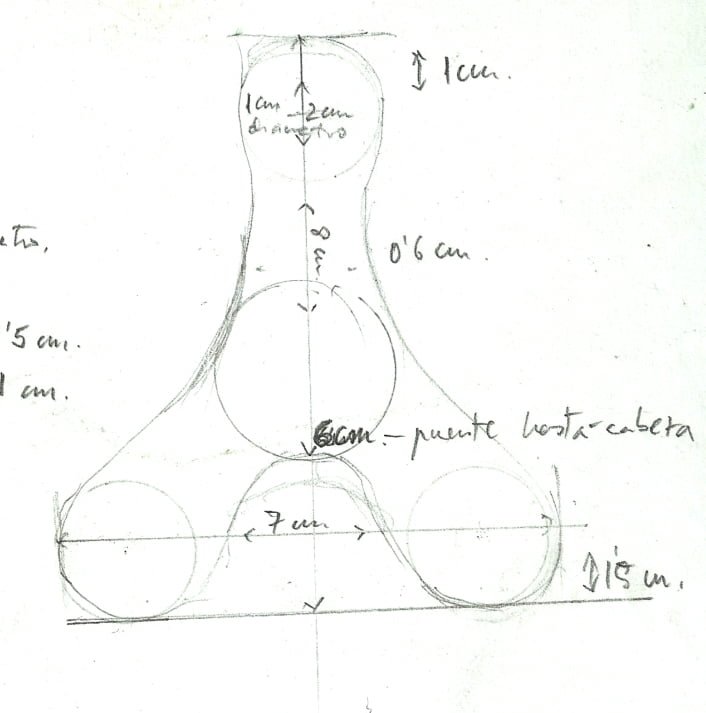 1 cm.
1 cm 2 cm
diametro
8 cm.
0'6 cm.
etro,
'5 cm.
1 cm.
6 cm. - puente hasta cabeza
7 cm
1'5 m.